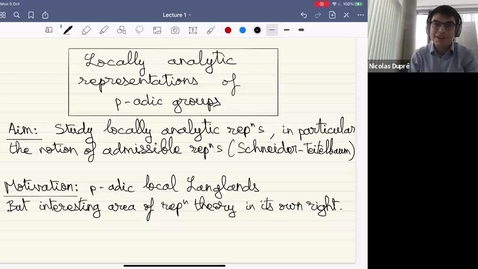 Mon 5 Oct
100%
Lecture 1
Nicolas Dupré
Locally analytic
representations of
p-adic groups
Aim: Study locally analytic repⁿs, in particular
the notion of admissible repⁿs (Schneider-Teitelbaum)
Motivation: p-adic local Langlands
But interesting area of repⁿ theory in its own right.